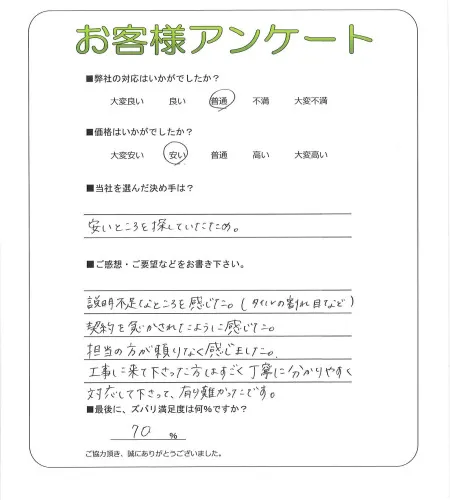 お客様アンケート
■弊社の対応はいかがでしたか？
大変良い 良い 普通 不満 大変不満
■価格はいかがでしたか？
大変安い 安い 普通 高い 大変高い
■当社を選んだ決め手は？
安いところを探していたため。
■ご感想・ご要望などをお書き下さい。
説明不足なところを感じた。(タイルの割れ目など)
契約を急がされたように感じた。
担当の方が頼りなく感じました。
工事に来て下さった方はすごく丁寧に分かりやすく
対応して下さって、有り難かったです。
■最後に、ズバリ満足度は何%ですか？
70 %
ご協力頂き、誠にありがとうございました。